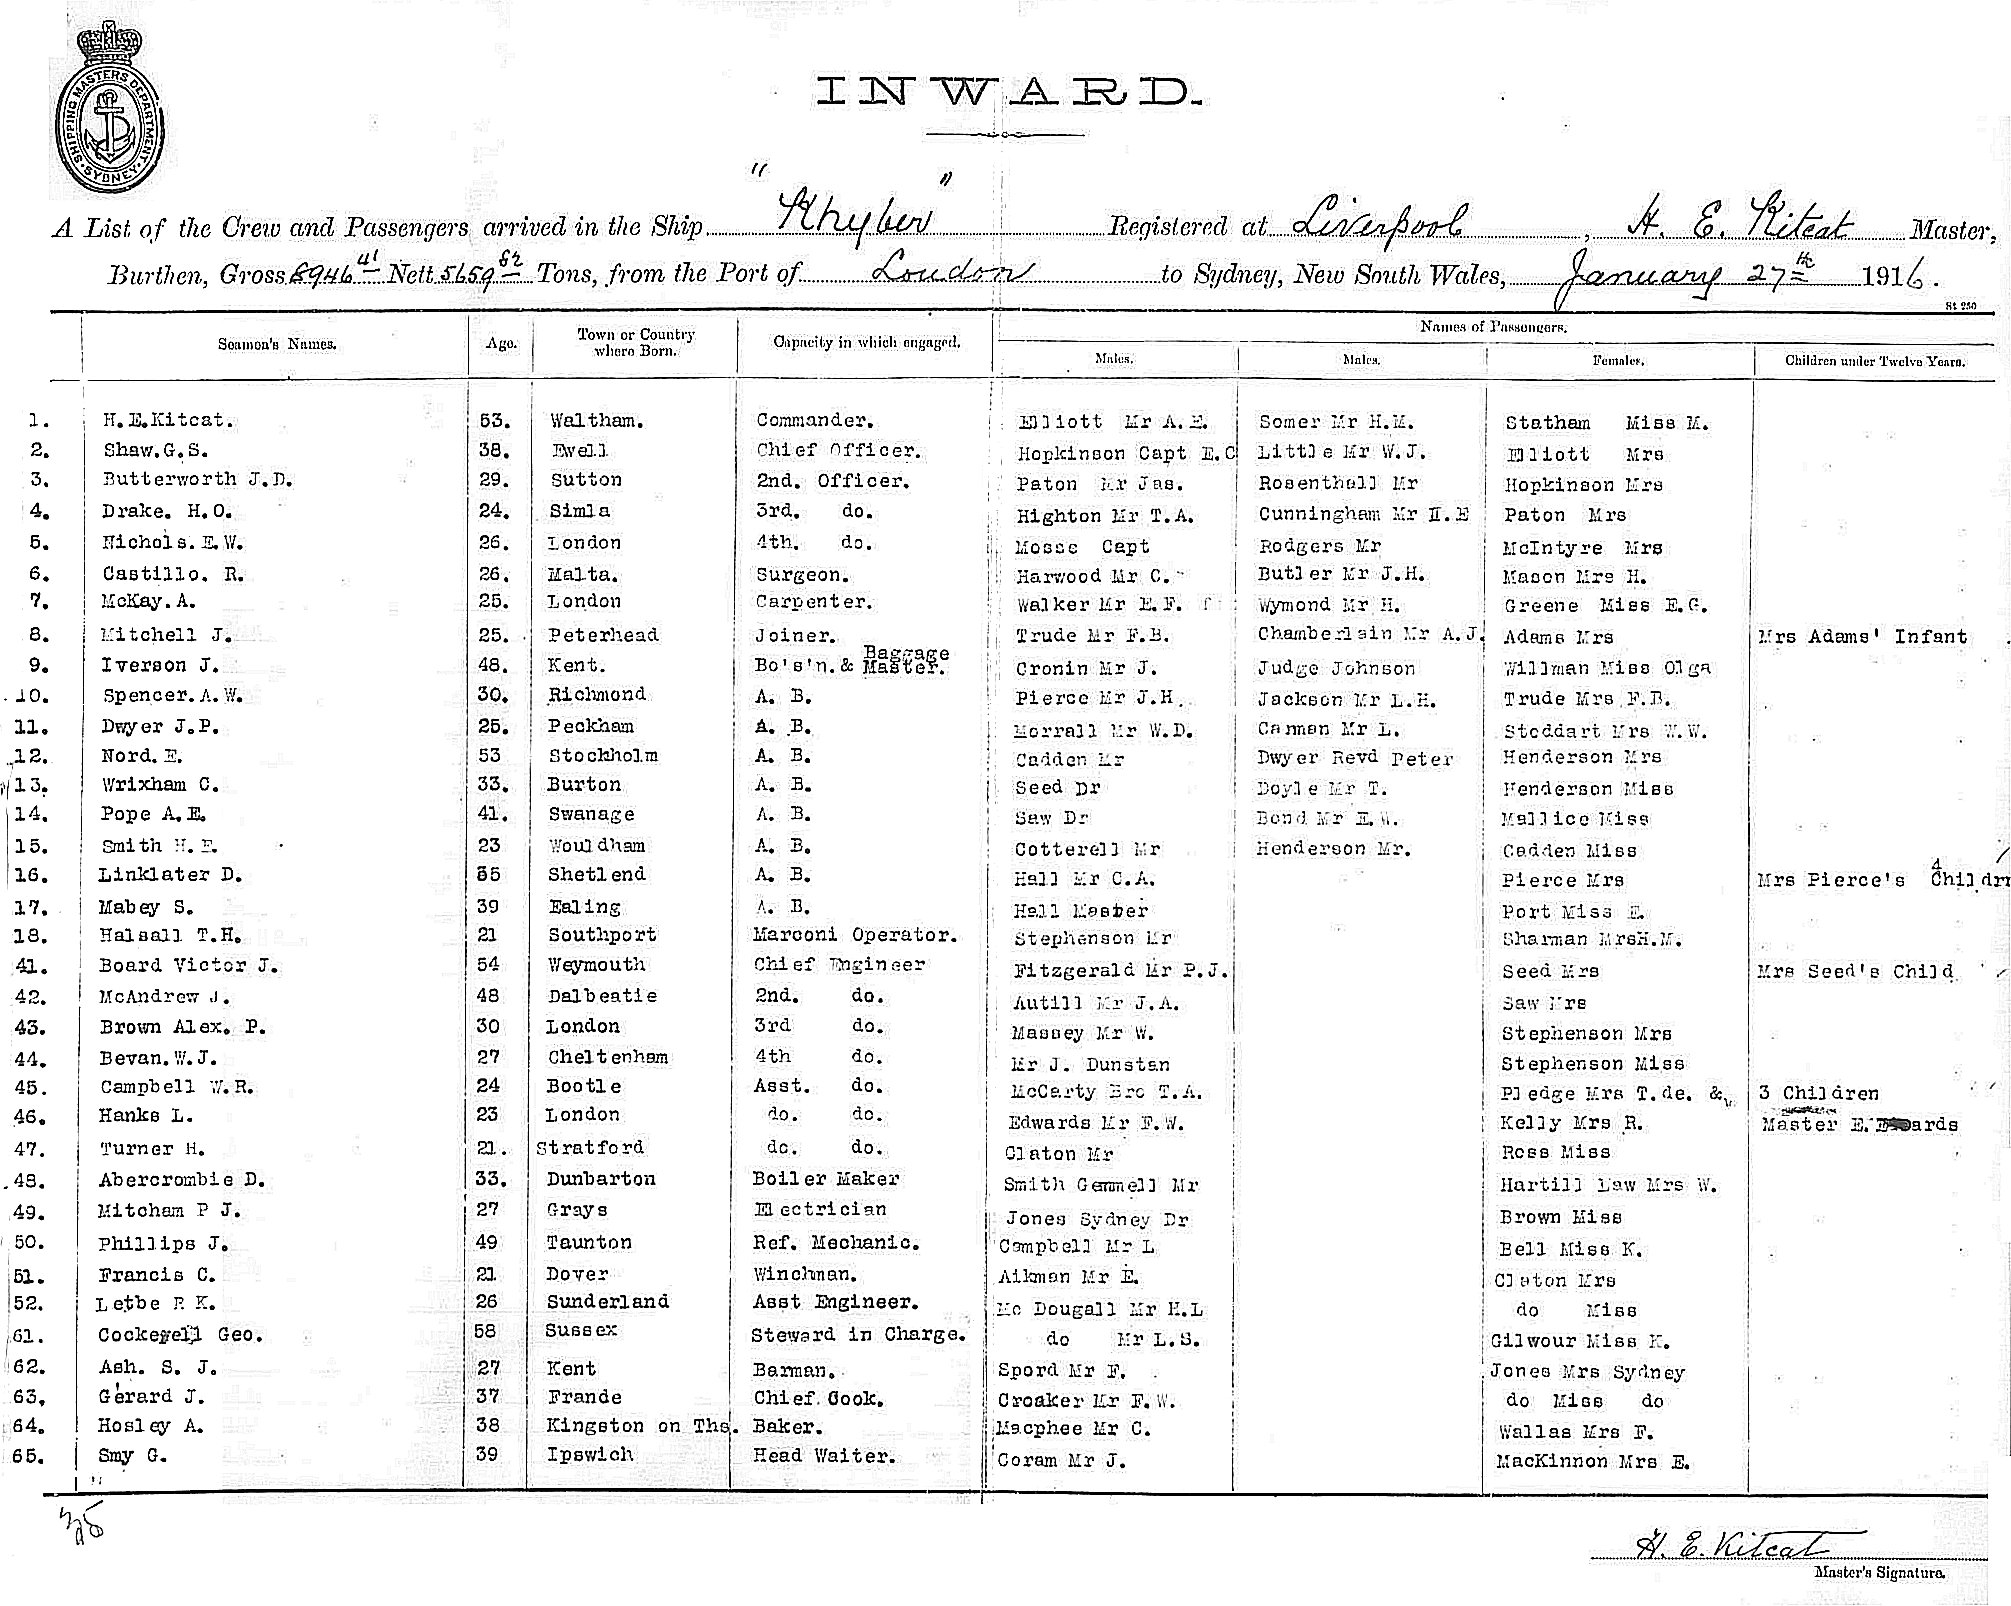 SHIPPING MASTERS DEPARTMENT. SYDNEY.
INWARD.
A List of the Crew and Passengers arrived in the Ship "Khyber" Registered at Liverpool, H. E. Kitcat Master,
Burthen, Gross 8946 41 Nett 5659 82 Tons, from the Port of London to Sydney, New South Wales, January 27th 1916.
St 250
Seamen's Names. Age. Town or Country where Born. Capacity in which engaged. Names of Passengers.
Males. Males. Females. Children under Twelve Years.
1. H.E.Kitcat. 53. Waltham. Commander. Elliott Mr A.E. Somer Mr H.M. Statham Miss M.
2. Shaw.G.S. 38. Ewell Chief Officer. Hopkinson Capt E.C Little Mr W.J. Elliott Mrs
3. Butterworth J.D. 29. Sutton 2nd. Officer. Paton Mr Jas. Rosenthall Mr Hopkinson Mrs
4. Drake. H.O. 24. Simla 3rd. do. Highton Mr T.A. Cunningham Mr H.E Paton Mrs
5. Nichols.E.W. 26. London 4th. do. Mosse Capt Rodgers Mr McIntyre Mrs
6. Castillo. R. 26. Malta. Surgeon. Harwood Mr C. Butler Mr J.H. Mason Mrs H.
7. McKay.A. 25. London Carpenter. Walker Mr E.F. Wymond Mr H. Greene Miss E.G.
8. Mitchell J. 25. Peterhead Joiner. Trude Mr F.B. Chamberlain Mr A.J. Adams Mrs Mrs Adams' Infant
9. Iverson J. 48. Kent. Bo's'n.& Baggage Master. Cronin Mr J. Judge Johnson Willman Miss Olga
10. Spencer.A.W. 30. Richmond A. B. Pierce Mr J.H. Jackson Mr L.H. Trude Mrs F.B.
11. Dwyer J.P. 25. Peckham A. B. Morrall Mr W.D. Carman Mr L. Stoddart Mrs W.W.
12. Nord.E. 53 Stockholm A. B. Cadden Mr Dwyer Revd Peter Henderson Mrs
13. Wrixham C. 33. Burton A. B. Seed Dr Doyle Mr T. Henderson Miss
14. Pope A.E. 41. Swanage A. B. Saw Dr Bond Mr E.W. Mallice Miss
15. Smith H.E. 23 Wouldham A. B. Cotterell Mr Henderson Mr. Cadden Miss
16. Linklater D. 35 Shetlend A. B. Hall Mr C.A. Pierce Mrs Mrs Pierce's 4 Childrn
17. Mabey S. 39 Ealing A. B. Hall Master Port Miss E.
18. Halsall T.H. 21 Southport Marconi Operator. Stephenson Mr Sharman MrsH.M.
41. Board Victor J. 54 Weymouth Chief Engineer Fitzgerald Mr P.J. Seed Mrs Mrs Seed's Child
42. McAndrew J. 48 Dalbeatie 2nd. do. Autill Mr J.A. Saw Mrs
43. Brown Alex. P. 30 London 3rd do. Massey Mr W. Stephenson Mrs
44. Bevan.W.J. 27 Cheltenham 4th do. Mr J. Dunstan Stephenson Miss
45. Campbell W.R. 24 Bootle Asst. do. McCarty Bro T.A. Pledge Mrs T.de. & 3 Children
46. Hanks L. 23 London do. do. Edwards Mr F.W. Kelly Mrs R. Master E.Edwards
47. Turner H. 21. Stratford do. do. Claton Mr Ross Miss
48. Abercrombie D. 33. Dunbarton Boiler Maker Smith Gemmell Mr Hartill Law Mrs W.
49. Mitcham P J. 27 Grays Electrician Jones Sydney Dr Brown Miss
50. Phillips J. 49 Taunton Ref. Mechanic. Campbell Mr L Bell Miss K.
51. Francis C. 21 Dover Winchman. Aikman Mr E. Claton Mrs
52. Letbe R K. 26 Sunderland Asst Engineer. Mc Dougall Mr H.L do Miss
61. Cockerell Geo. 58 Sussex Steward in Charge. do Mr L.S. Gilwour Miss K.
62. Ash. S. J. 27 Kent Barman. Spord Mr F. Jones Mrs Sydney
63, Gerard J. 37 Frande Chief Cook. Croaker Mr F.W. do Miss do
64. Hosley A. 38 Kingston on Ths. Baker. Macphee Mr C. Wallas Mrs F.
65. Smy G. 39 Ipswich Head Waiter. Coram Mr J. MacKinnon Mrs E.
35
H. E. Kitcat
Master's Signature.